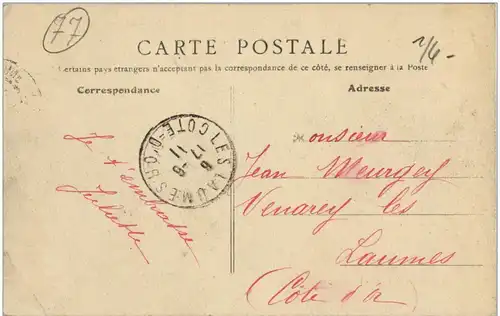 77
CARTE POSTALE
Certains pays étrangers n'acceptant pas la correspondance de ce côté, se renseigner à la Poste
Correspondance
Adresse
Je t'embrasse
Juliette
LES LAUMES COTE-D'OR
Monsieur
Jean Meurgey
Venarey les
Laumes
(Côte d'or)